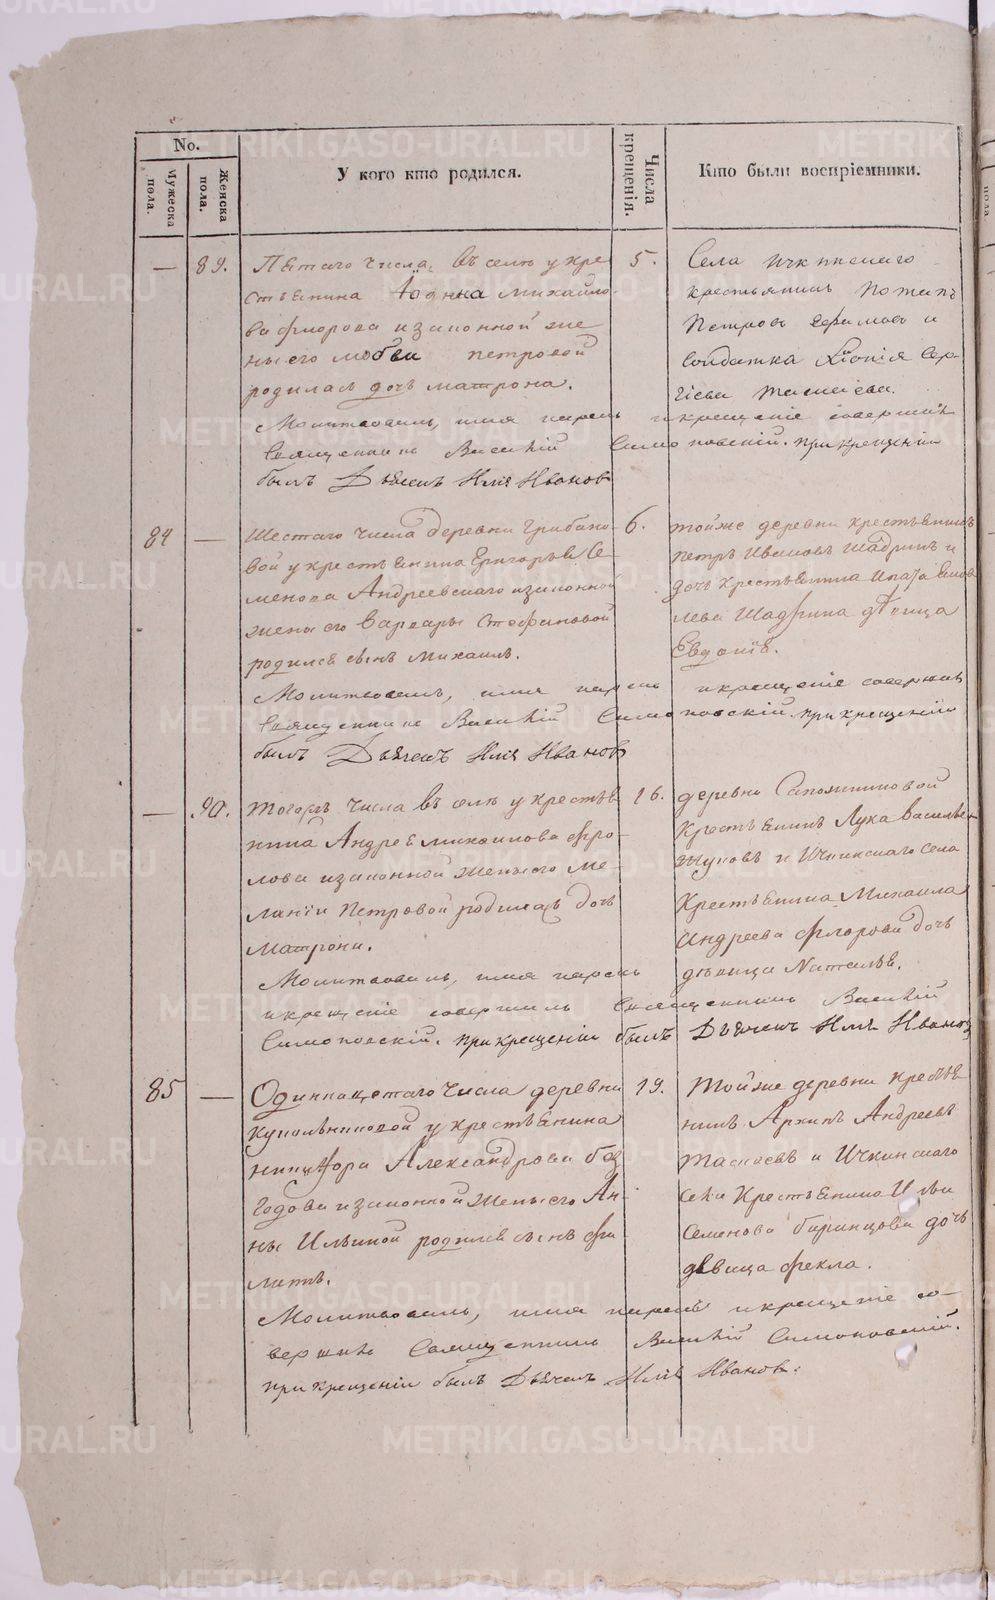 No.
Мужеска пола.
Женска пола.
У кого кто родился.
Числа крещенія.
Кто были воспріемники.
— 89. Пятаго числа, въ селѣ у кре-
стьянина Іоанна Михайло-
ва Флорова и законной же-
ны его Любви Петровой
родилась дочь Матрона.
5.
Села Ичкинскаго
крестьянинъ Потапъ
Петровъ Ефимовъ и
солдатка Хіонія Сер-
гіева
Молитвовалъ, имя нарекъ и крещеніе совершилъ
Священникъ Василій Симоновскій. При крещеніи
былъ Дьячекъ Илія Ивановъ
84 — Шестаго числа деревни Грибано-
вой у крестьянина Григорья Се-
менова Андреевскаго и законной
жены его Варвары Стефановой
родился сынъ Михаилъ.
6.
тойже деревни крестьянинъ
Петръ Ивановъ Шадринъ и
дочь крестьянина Ипата
Шадрина дѣвица
Евдокія.
Молитвовалъ, имя нарекъ и крещеніе совершилъ
Священникъ Василій Симоновскій. при крещеніи
былъ Дьячекъ Илія Ивановъ
— 90. тогожъ числа въ селѣ у крестья
нина Андрея Михайлова Фро-
лова и законной жены его Ме-
ланіи Петровой родилась дочь
Матрона.
16.
деревни Сапожниковой
Крестьянинъ Лука Васильевъ
Жуковъ и Ичкинскаго села
Крестьянина Михаила
Андреева Флорова дочь
дѣвица Наталья.
Молитвовалъ, имя нарекъ
и крещеніе совершилъ Священникъ Василій
Симоновскій. При крещеніи былъ Дьячекъ Илія Ивановъ
85 — Одиннацетаго числа деревни
у крестьянина
Никифора Александрова
и законной жены его Ан-
ны Ильиной родился сынъ Фи
липъ.
19.
Тойже деревни крестья
нинъ Архипъ Андреевъ
и Ичкинскаго
села Крестьянина Ильи
Семенова дочь
дѣвица Фекла.
Молитвовалъ, имя нарекъ и крещеніе со-
вершилъ Священникъ Василій Симоновскій.
при крещеніи былъ Дьячекъ Илія Ивановъ.
METRIKI.GASO-URAL.RU